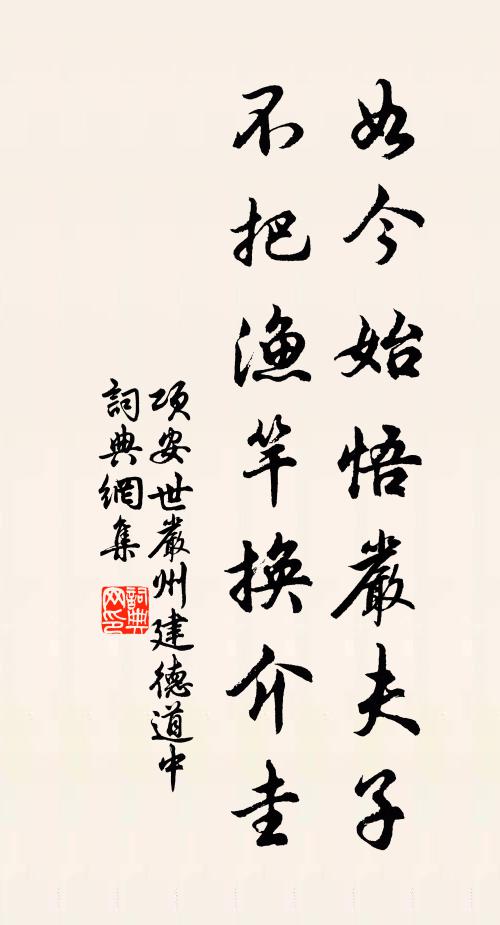 如今始悟嚴夫子
不把漁竿換介圭
項安世嚴州建德道中
詞典網集
詞典网印